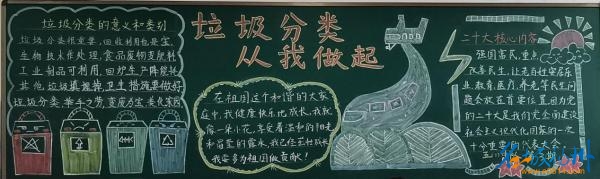 垃圾分类的意义和类别
垃圾分类很重要,回收利用也是宝
生物技术作处理,食品废物变肥料
工业制品可利用,回炉生产降能耗
其他垃圾填埋掩,卫生措施要做好
垃圾分类,举手之劳,变废为宝,美化家园
垃圾分类
从我做起
在祖国这个和谐的大家
庭中,我健康快乐地成长,我就
像一朵小花,享受着温和的阳光
和甘露的露水,我已经茁壮成长
我要多为祖国做贡献!
二十大核心内容
强国富民,重
改善民生,让老百姓安居乐
业,教育医疗,养老等民生问
题会放在首要位置,因为党
的二十大是我们党全面建设
社会主义现代化国家的一次
十分重要的代表大会